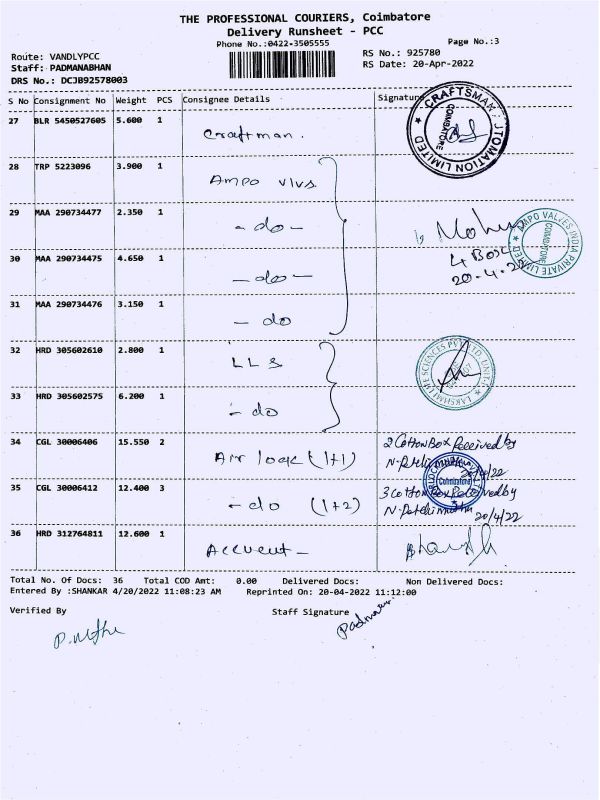 THE PROFESSIONAL COURIERS, Coimbatore
Delivery Runsheet - PCC
Phone No.:0422-3505555 Page No.:3
Route: VANDLYPCC RS No.: 925780
Staff: PADMANABHAN RS Date: 20-Apr-2022
DRS No.: DCJB92578003
S No Consignment No Weight PCS Consignee Details Signature
27 BLR 5450527605 5.600 1 Craftman. CRAFTSMAN COIMBATORE LIMITED
28 TRP 5223096 3.900 1 Ampo vlvs
29 MAA 290734477 2.350 1 - do - AMPO VALVES INDIA PRIVATE LIMITED COIMBATORE
4 Box
30 MAA 290734475 4.650 1 - do - 20-4-22
31 MAA 290734476 3.150 1 - do
32 HRD 305602610 2.800 1 LLS LAKSHMI LIFE SCIENCES PVT LTD. UNIT-I
33 HRD 305602575 6.200 1 - do
34 CGL 30006406 15.550 2 Air lock (1+1) 2 Cotton Box Received by
20/4/22
Coimbatore
35 CGL 30006412 12.400 3 - do (1+2) 3 Cotton Box Received by
20/4/22
36 HRD 312764811 12.600 1
Total No. Of Docs: 36 Total COD Amt: 0.00 Delivered Docs: Non Delivered Docs:
Entered By :SHANKAR 4/20/2022 11:08:23 AM Reprinted On: 20-04-2022 11:12:00
Verified By Staff Signature